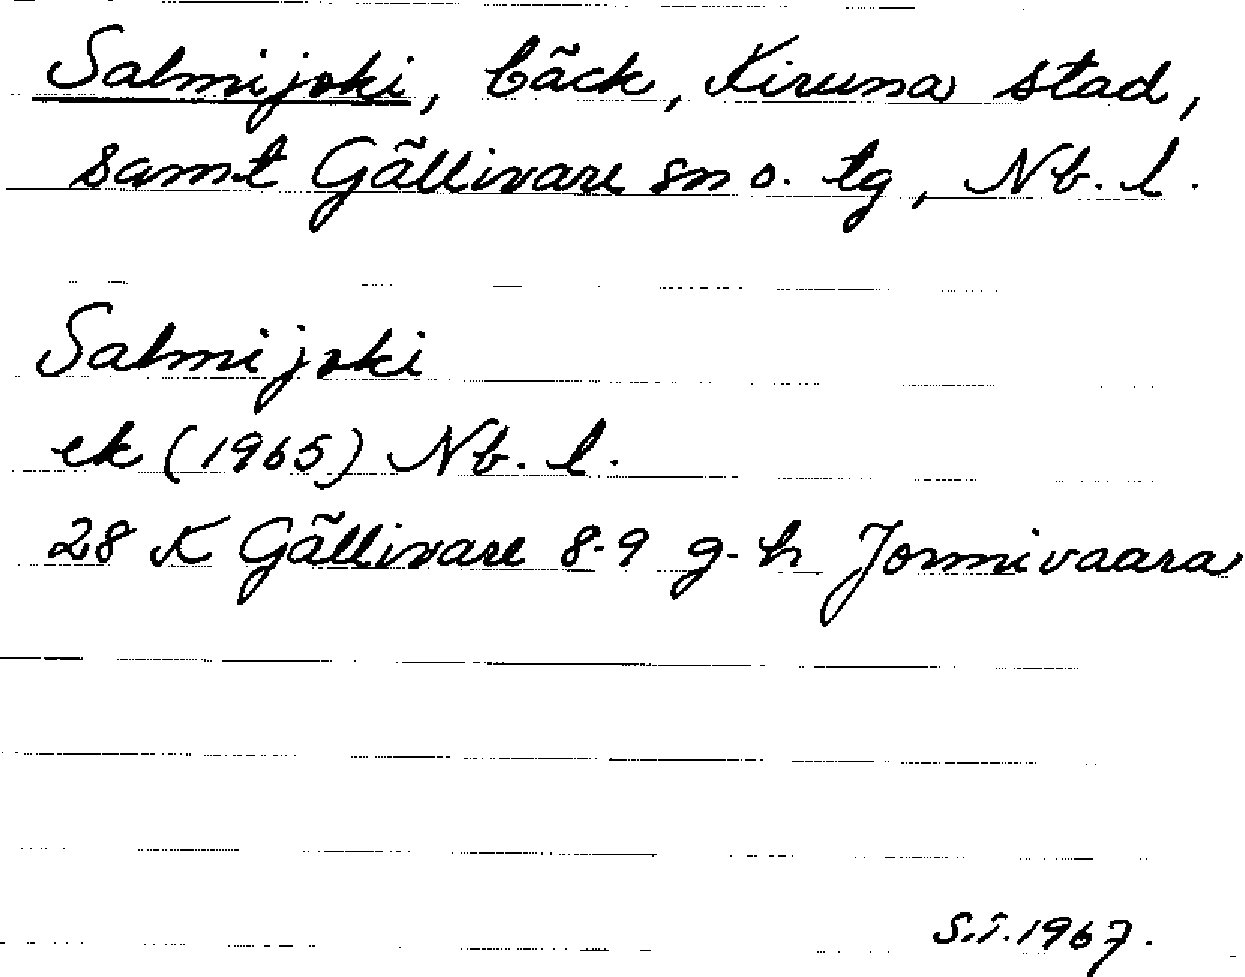 Salmijoki, bäck, Kiruna stad,
samt Gällivare sn o. tg, Nb. l.
Salmijoki
ek (1965) Nb. l.
28 K Gällivare 8-9 g-h Jormivaara
S.T. 1967.